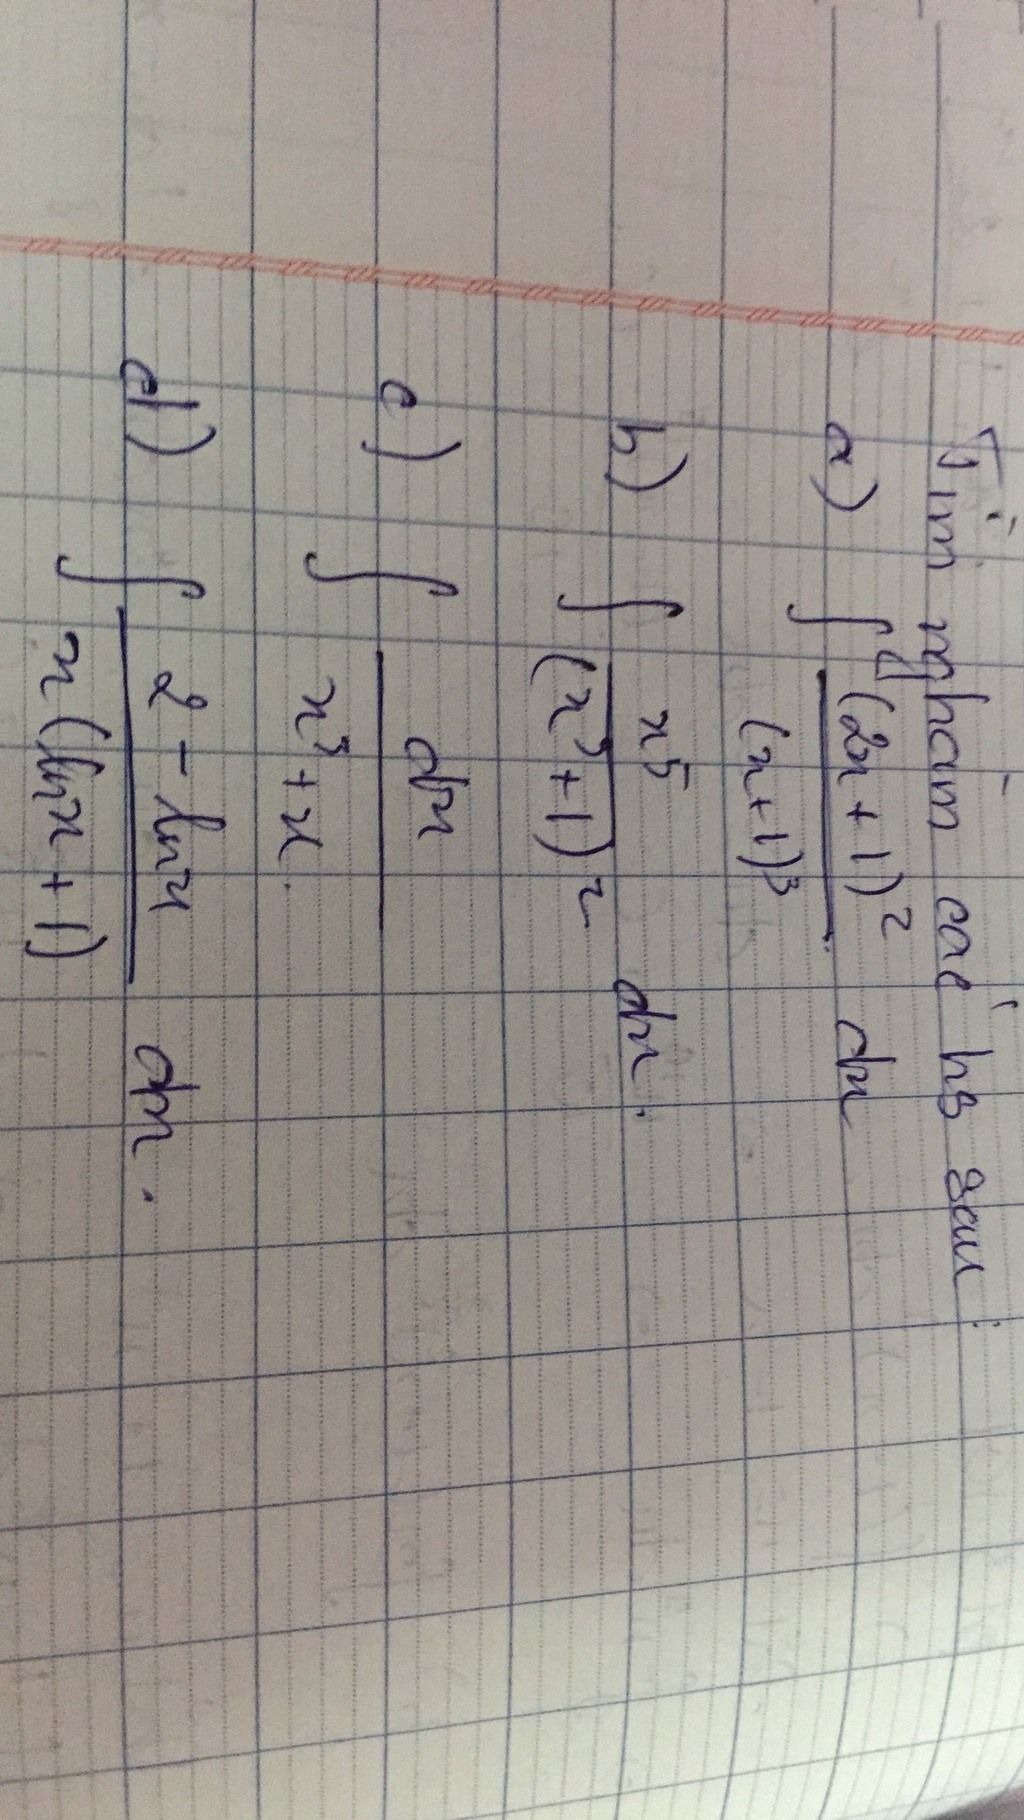 Tìm nghàm các hs sau:
a) ∫ (2x+1)² / (x+1)³ dx
b) ∫ x⁵ / (x³+1)² dx.
c) ∫ dx / x³+x.
d) ∫ 2 - lnx / x(lnx+1) dx.